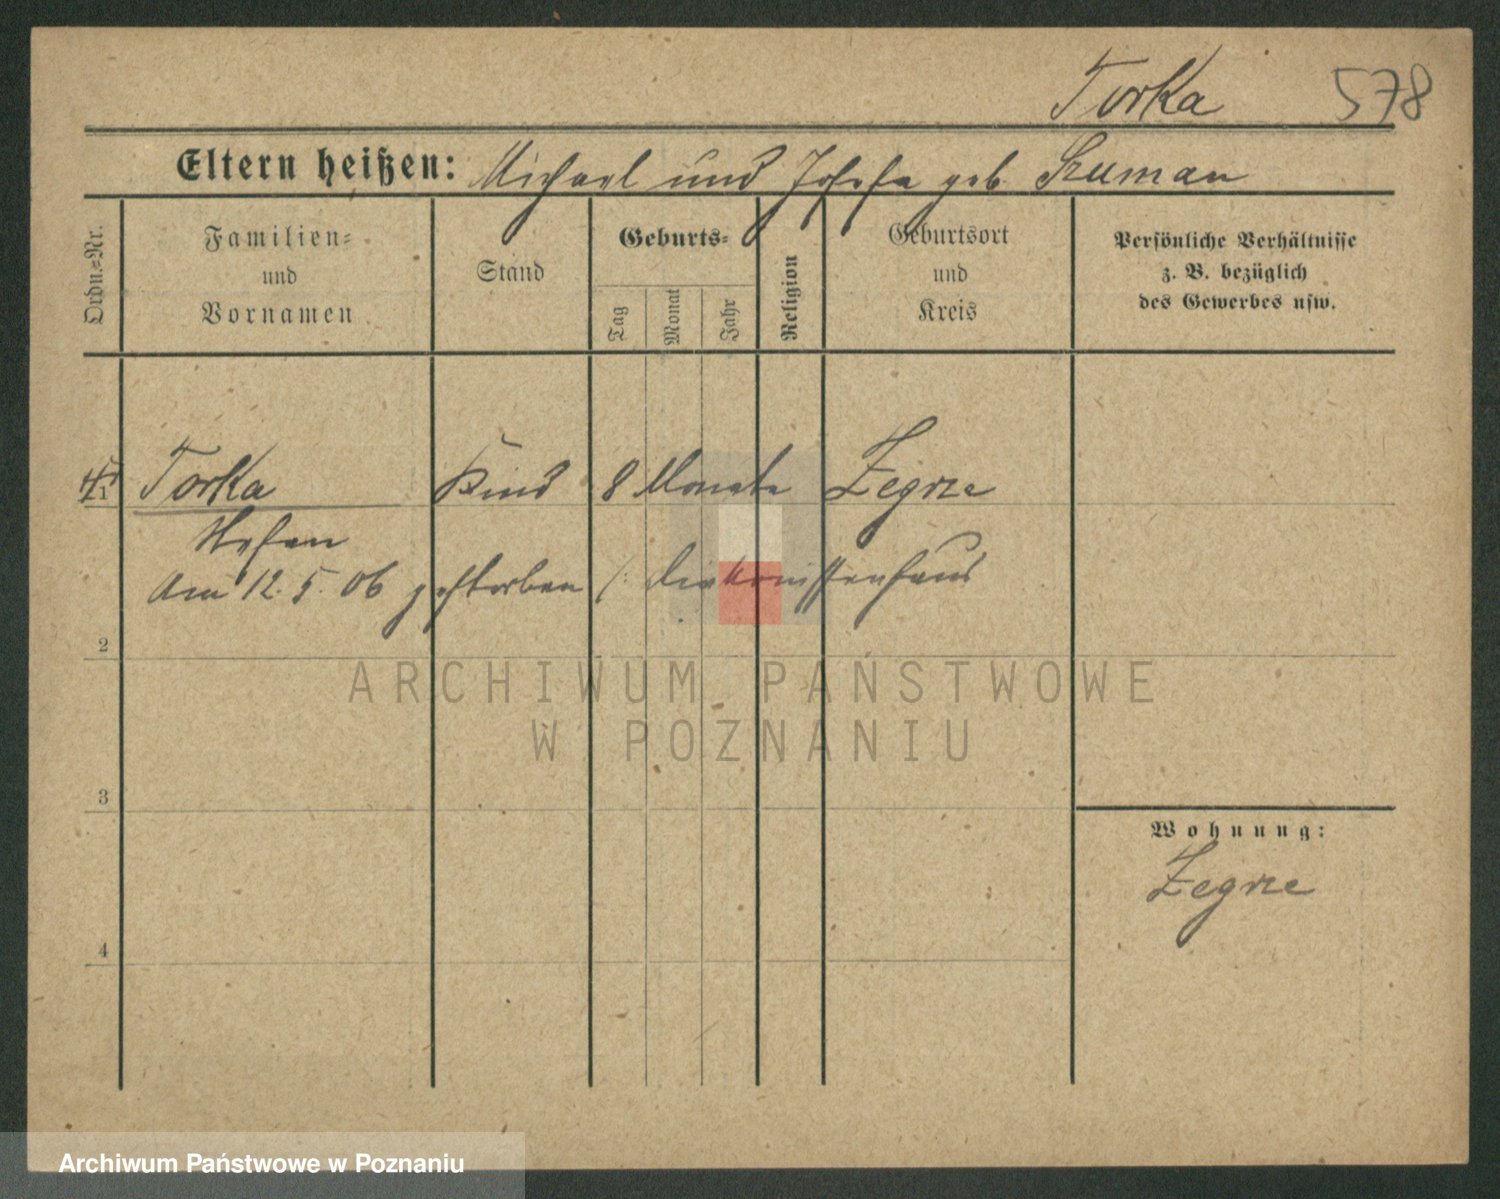 Torka 578
Eltern heißen: Michael und Josefa geb. Szuman
Ordn.-Nr.
Familien-
und
Vornamen
Stand
Geburts-
Tag
Monat
Jahr
Religion
Geburtsort
und
Kreis
Persönliche Verhältnisse
z. B. bezüglich
des Gewerbes usw.
1 Torka Kind 8 Monate Zegrze
Stefan
Am 12.5.06 gestorben /: Diakonissenhaus
2
ARCHIWUM PAŃSTWOWE
W POZNANIU
3
Wohnung:
Zegrze
4
Archiwum Państwowe w Poznaniu